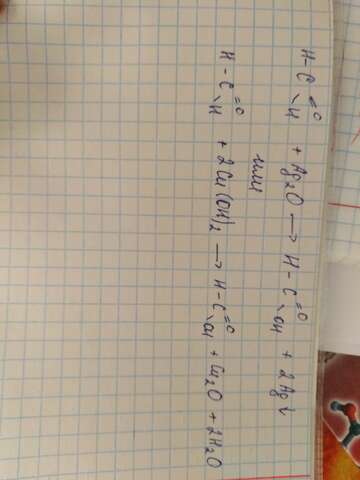 H-C=O\H + Ag₂O → H-C=O\OH + 2Ag↓
или
H-C=O\H + 2Cu(OH)₂ → H-C=O\OH + Cu₂O + 2H₂O